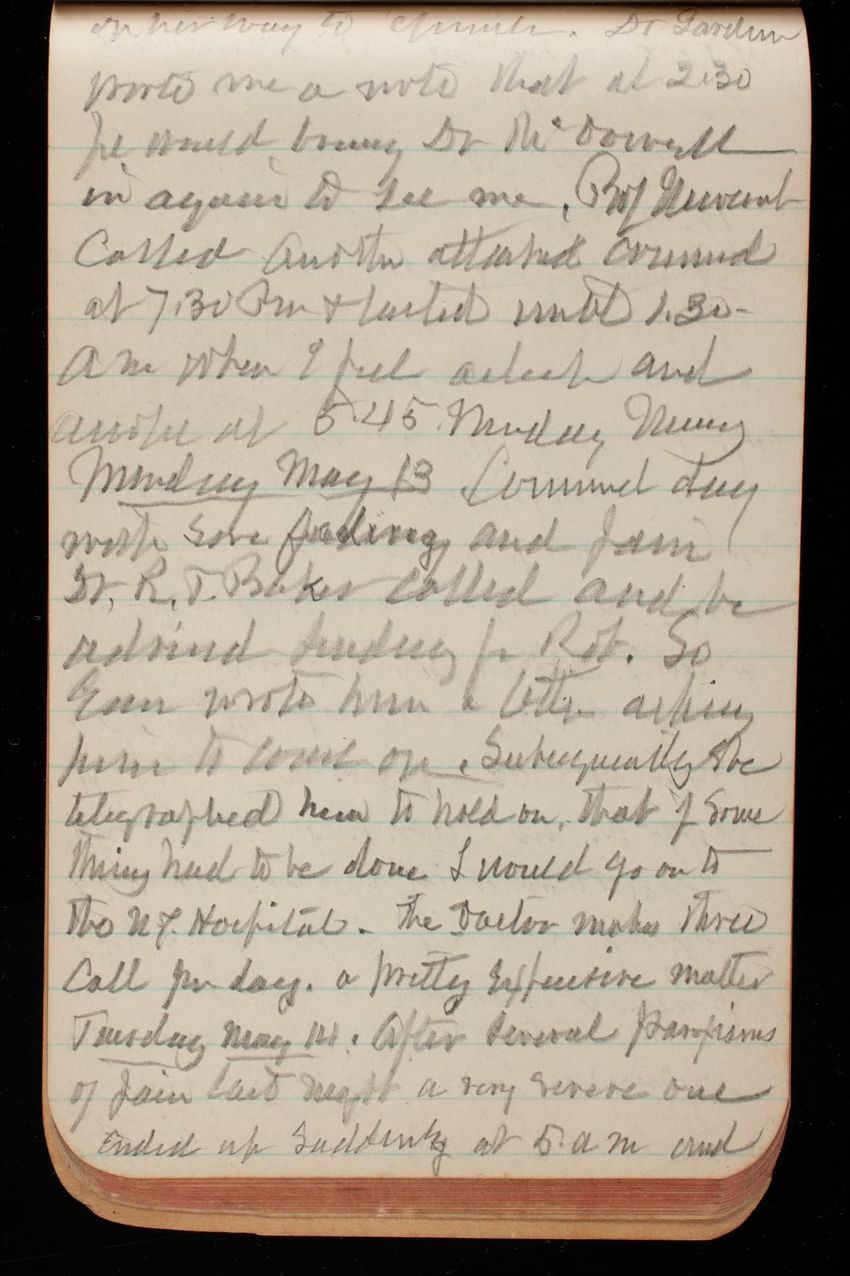 on her way to church. Dr Gardner
wrote me a note that at 2.30
he would bring Dr McDowell
in again to see me, Prof
Called Another attack commenced
at 7.30 Pm & lasted until 1.30-
am when I fell asleep and
awoke at 5.45. Monday
Monday May 13 Commenced day
with sore feeling and pain
Dr. R. T. Baker called and he
advised sending for Rob. So
Evan wrote him a letter asking
him to come on. Subsequently she
telegraphed him to hold on, that if some
thing had to be done I would go on to
the N.Y. Hospital. The Doctor makes three
Call per day. a pretty expensive matter
Tuesday May 14. After several paroxisms
of pain last night a very severe one
ended up suddenly at 5. am and